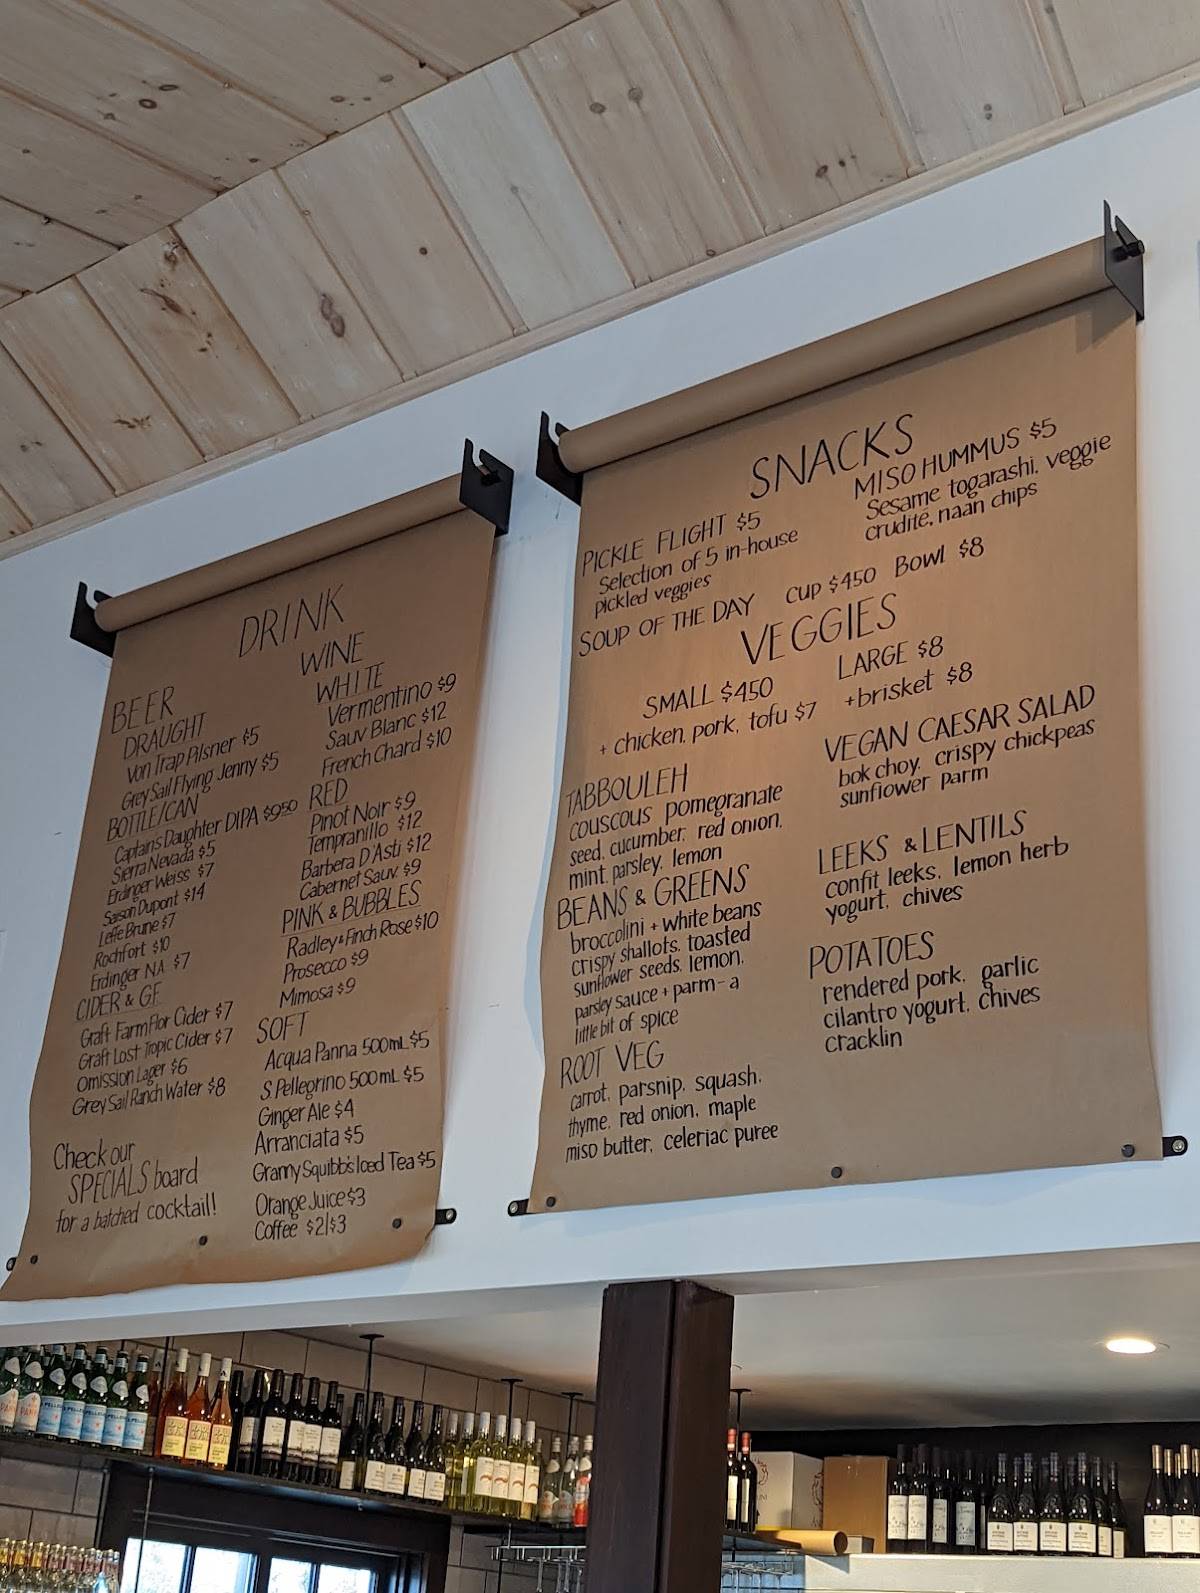 DRINK
BEER
DRAUGHT
Von Trap Pilsner $5
Grey Sail Flying Jenny $5
BOTTLE/CAN
Captains Daughter DIPA $950
Sierra Nevada $5
Erdinger Weiss $7
Saison Dupont $14
Leffe Brune $7
Rochfort $10
Erdinger NA $7
CIDER & GF
Graft Farm Flor Cider $7
Graft Lost Tropic Cider $7
Omission Lager $6
Grey Sail Ranch Water $8
Check our
SPECIALS board
for a batched cocktail!
WINE
WHITE
Vermentino $9
Sauv Blanc $12
French Chard $10
RED
Pinot Noir $9
Tempranillo $12
Barbera D'Asti $12
Cabernet Sauv. $9
PINK & BUBBLES
Radley & Finch Rose $10
Prosecco $9
Mimosa $9
SOFT
Acqua Panna 500mL $5
S.Pellegrino 500mL $5
Ginger Ale $4
Arranciata $5
Granny Squibb's Iced Tea $5
Orange Juice $3
Coffee $2|$3
SNACKS
PICKLE FLIGHT $5
Selection of 5 in-house
pickled veggies
MISO HUMMUS $5
Sesame togarashi, veggie
crudite, naan chips
SOUP OF THE DAY Cup $450 Bowl $8
VEGGIES
SMALL $450
+ chicken, pork, tofu $7
LARGE $8
+brisket $8
TABBOULEH
couscous pomegranate
seed, cucumber, red onion,
mint, parsley, lemon
BEANS & GREENS
broccolini + white beans
crispy shallots, toasted
sunflower seeds, lemon,
parsley sauce + parm - a
little bit of spice
ROOT VEG
carrot, parsnip, squash,
thyme, red onion, maple
miso butter, celeriac puree
VEGAN CAESAR SALAD
bok choy, crispy chickpeas
sunflower parm
LEEKS & LENTILS
confit leeks, lemon herb
yogurt, chives
POTATOES
rendered pork, garlic
cilantro yogurt, chives
cracklin